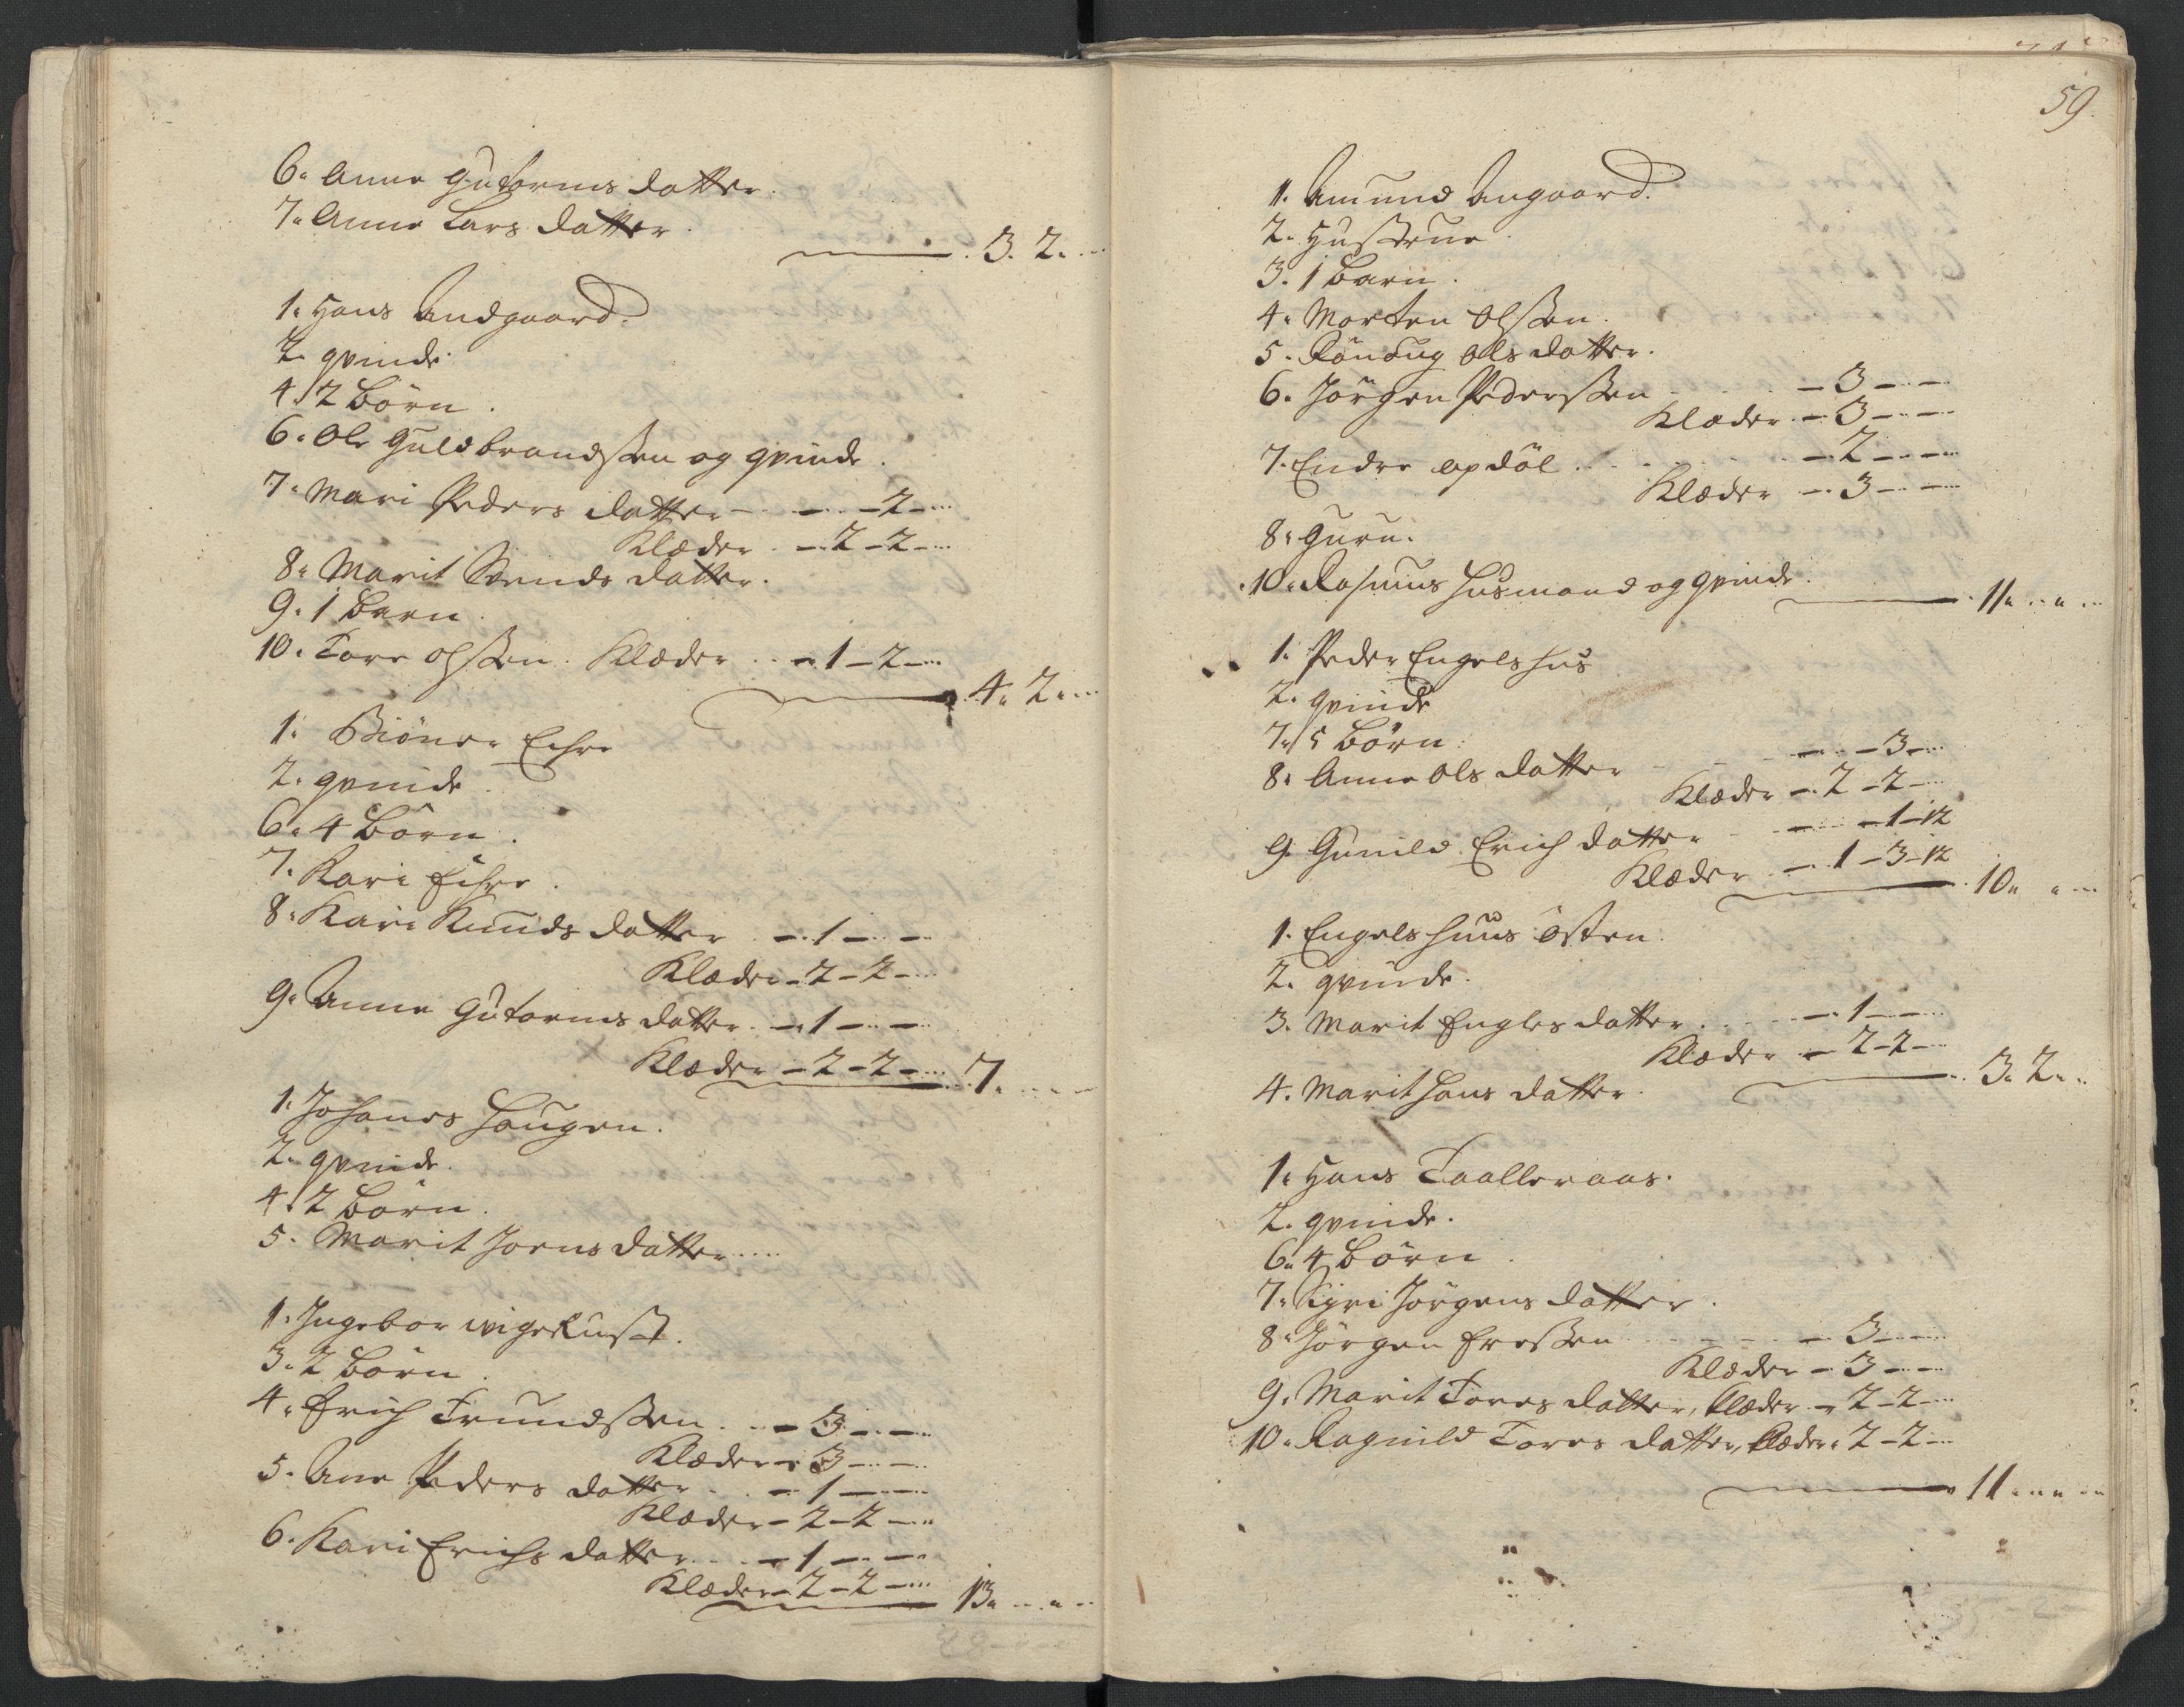 6. Anne Gutorms datter.
7. Anne Lars datter.
3. 2.
1. Hans Andgaard.
2. qvinde.
4. 2 Börn.
6. Ole Guldbrandssen og qvinde.
7. Mari Peders datter - 2 -
Klæder - 2 - 2 -
8. Marit Svends datter.
9. 1 Barn
10. Tore Olssen. Klæder - 1 - 2 -
4. 2.
1. Biöner Echre
2. qvinde.
6. 4 Börn.
7. Kari Echre.
8. Kari Knuds datter - 1 -
Klæder - 2 - 2 -
9. Anne Gutorms datter. - 1 -
Klæder - 2 - 2 - 7.
1. Johanes Haugen.
2. qvinde.
4. 2 Börn.
5. Marit Joens datter
1. Ingebor wigerust.
3. 2 Börn.
4. Erich Trundssen. - 3 -
Klæder - 3 -
5. Ane Peders datter - 1 -
Klæder - 2 - 2 -
6. Kari Erichs datter - 1 -
Klæder - 2 - 2 - 13.
59.
1. Amund Angaard.
2. Hustrue.
3. 1 Barn.
4. Morten Olssen.
5. Rönnug Ols datter.
6. Jörgen Pederssen - 3 -
Klæder - 3 -
7. Endre opdöl - 2 -
Klæder - 3 -
8. Guru.
10. Rasmus Husmand og qvinde.
11.
1. Peder Engelshus
2. qvinde
7. 5 Börn.
8. Anne Ols datter - 3 -
Klæder - 2 - 2 -
9. Gunild Erich datter - 1 - 12
Klæder - 1 - 3 - 12
10.
1. Engelshuus Östen.
2. qvinde.
3. Marit Engles datter. - 1 -
Klæder - 2 - 2 -
4. Marit Hans datter. 3. 2.
1. Hans Taalleraas.
2. qvinde.
6. 4 Börn.
7. Sigri Jörgens datter.
8. Jörgen Fressen - 3 -
Klæder - 3 -
9. Marit Tores datter, klæder - 2 - 2 -
10. Ragnild Tores datter, klæder 2 - 2 -
11.